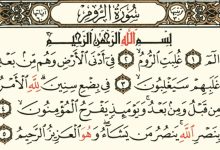 سُورَةُ الرُّومِ
بِسْمِ اللَّهِ الرَّحْمَٰنِ الرَّحِيمِ
غُلِبَتِ الرُّومُ ٢ فِي أَدْنَى الْأَرْضِ وَهُم مِّن بَعْدِ
غَلَبِهِمْ سَيَغْلِبُونَ ٣ فِي بِضْعِ سِنِينَ ۗ لِلَّهِ الْأَمْرُ
مِن قَبْلُ وَمِن بَعْدُ ۚ وَيَوْمَئِذٍ يَفْرَحُ الْمُؤْمِنُونَ ٤
بِنَصْرِ اللَّهِ ۚ يَنصُرُ مَن يَشَاءُ ۖ وَهُوَ الْعَزِيزُ الرَّحِيمُ ٥